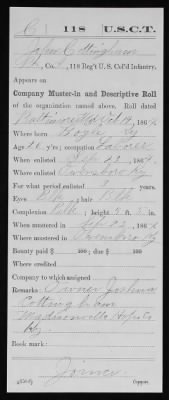 C | 118 | U.S.C.T.
John Cottingham
Pvt., Co. A, 118 Reg't U. S. Col'd Infantry.
Appears on
Company Muster-in and Descriptive Roll
of the organization named above. Roll dated
Baltimore Md Oct 14, 1864
Where born Ky
Age 26 y'rs; occupation Laborer
When enlisted Sep 23, 1864
Where enlisted Owensboro Ky
For what period enlisted 3 years.
Eyes Blk; hair Blk
Complexion Blk; height 5 ft. 5 in.
When mustered in Sep 23, 1864
Where mustered in Owensboro Ky
Bounty paid $ 100; due $ 100
Where credited
Company to which assigned
Remarks: Owner Joshua
Cottingham
Madisonville Hopkins
Ky
Book mark:
Copyist.